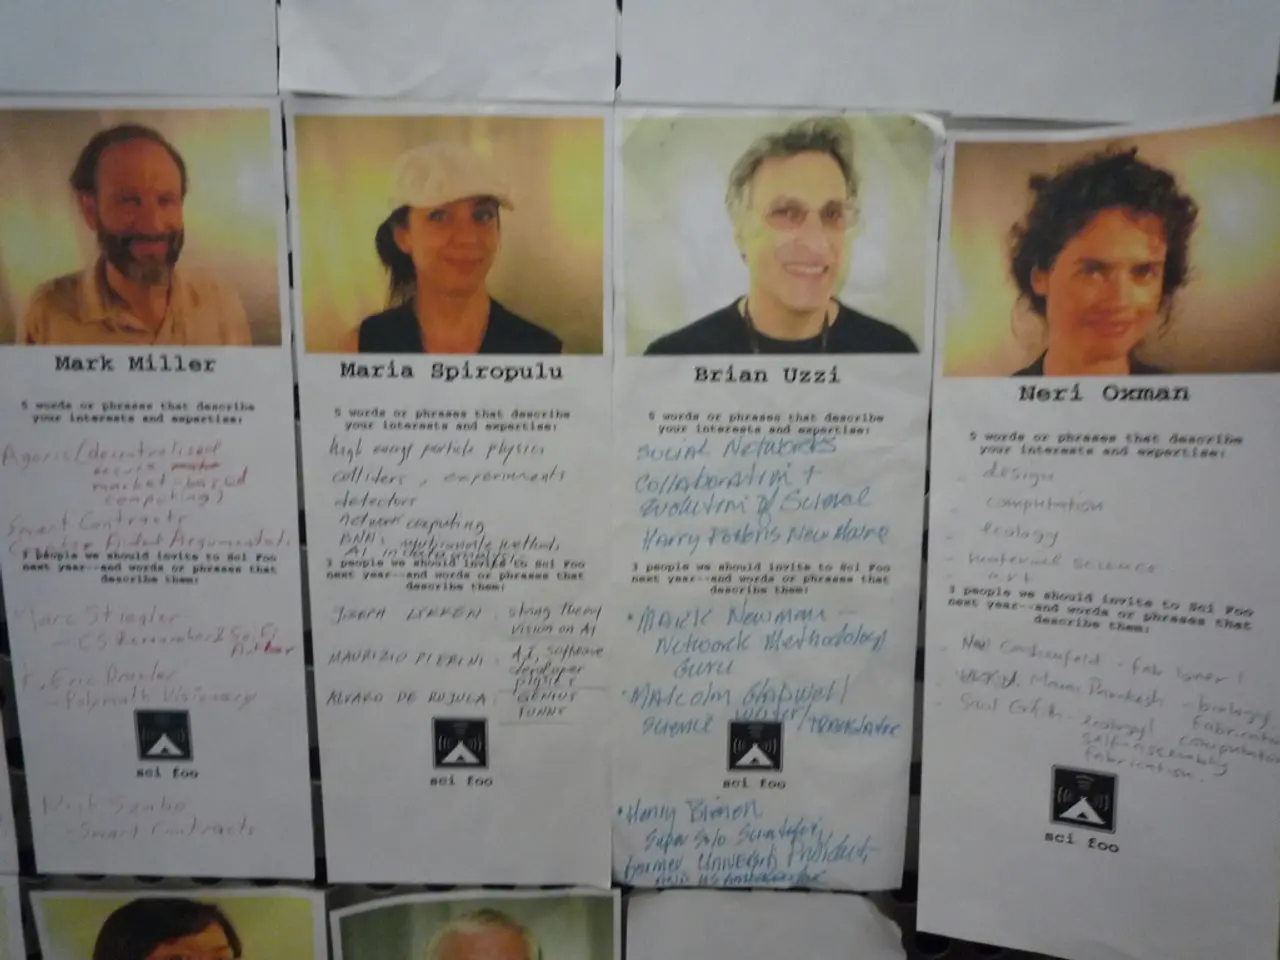 Mark Miller
5 words or phrases that describe
your interests and expertise:
Agoric (decentralized
secure
market-based
computing)
Smart Contracts
Aided Argumentation
3 people we should invite to Sci Foo
next year--and words or phrases that
describe them:
Marc Stiegler
- CS Researcher & Sci Fi
Author
K. Eric Drexler
- Polymath Visionary
sci foo
Nick Szabo
- Smart Contracts
Maria Spiropulu
5 words or phrases that describe
your interests and expertise:
high energy particle physics
colliders, experiments
detectors
network computing
BNN: multivariate methods
AI in data analysis
3 people we should invite to Sci Foo
next year--and words or phrases that
describe them:
JOSEPH LYKKEN : string theory
vision on AI
MAURIZIO PIERINI : A.I, software
developer
physics
ALVARO DE RUJULA : GENIUS
FUNNY
sci foo
Brian Uzzi
5 words or phrases that describe
your interests and expertise:
Social Networks
Collaboration +
Evolution of Science
Harry Potter's New
3 people we should invite to Sci Foo
next year--and words or phrases that
describe them:
• Mark Newman -
Network Methodology
Guru
• Malcolm Gladwell
Science writer/translator
sci foo
• Henry Bienen
Super Solo Scientist,
Former University President,
Neri Oxman
5 words or phrases that describe
your interests and expertise:
- design
- computation
- ecology
- material science
- art
3 people we should invite to Sci Foo
next year--and words or phrases that
describe them:
- Neil Gershenfeld - fab
- Manu Prakash - biology
fabrication
- Saul Griffith - ecology, computation
self-assembly
fabrication.
sci foo